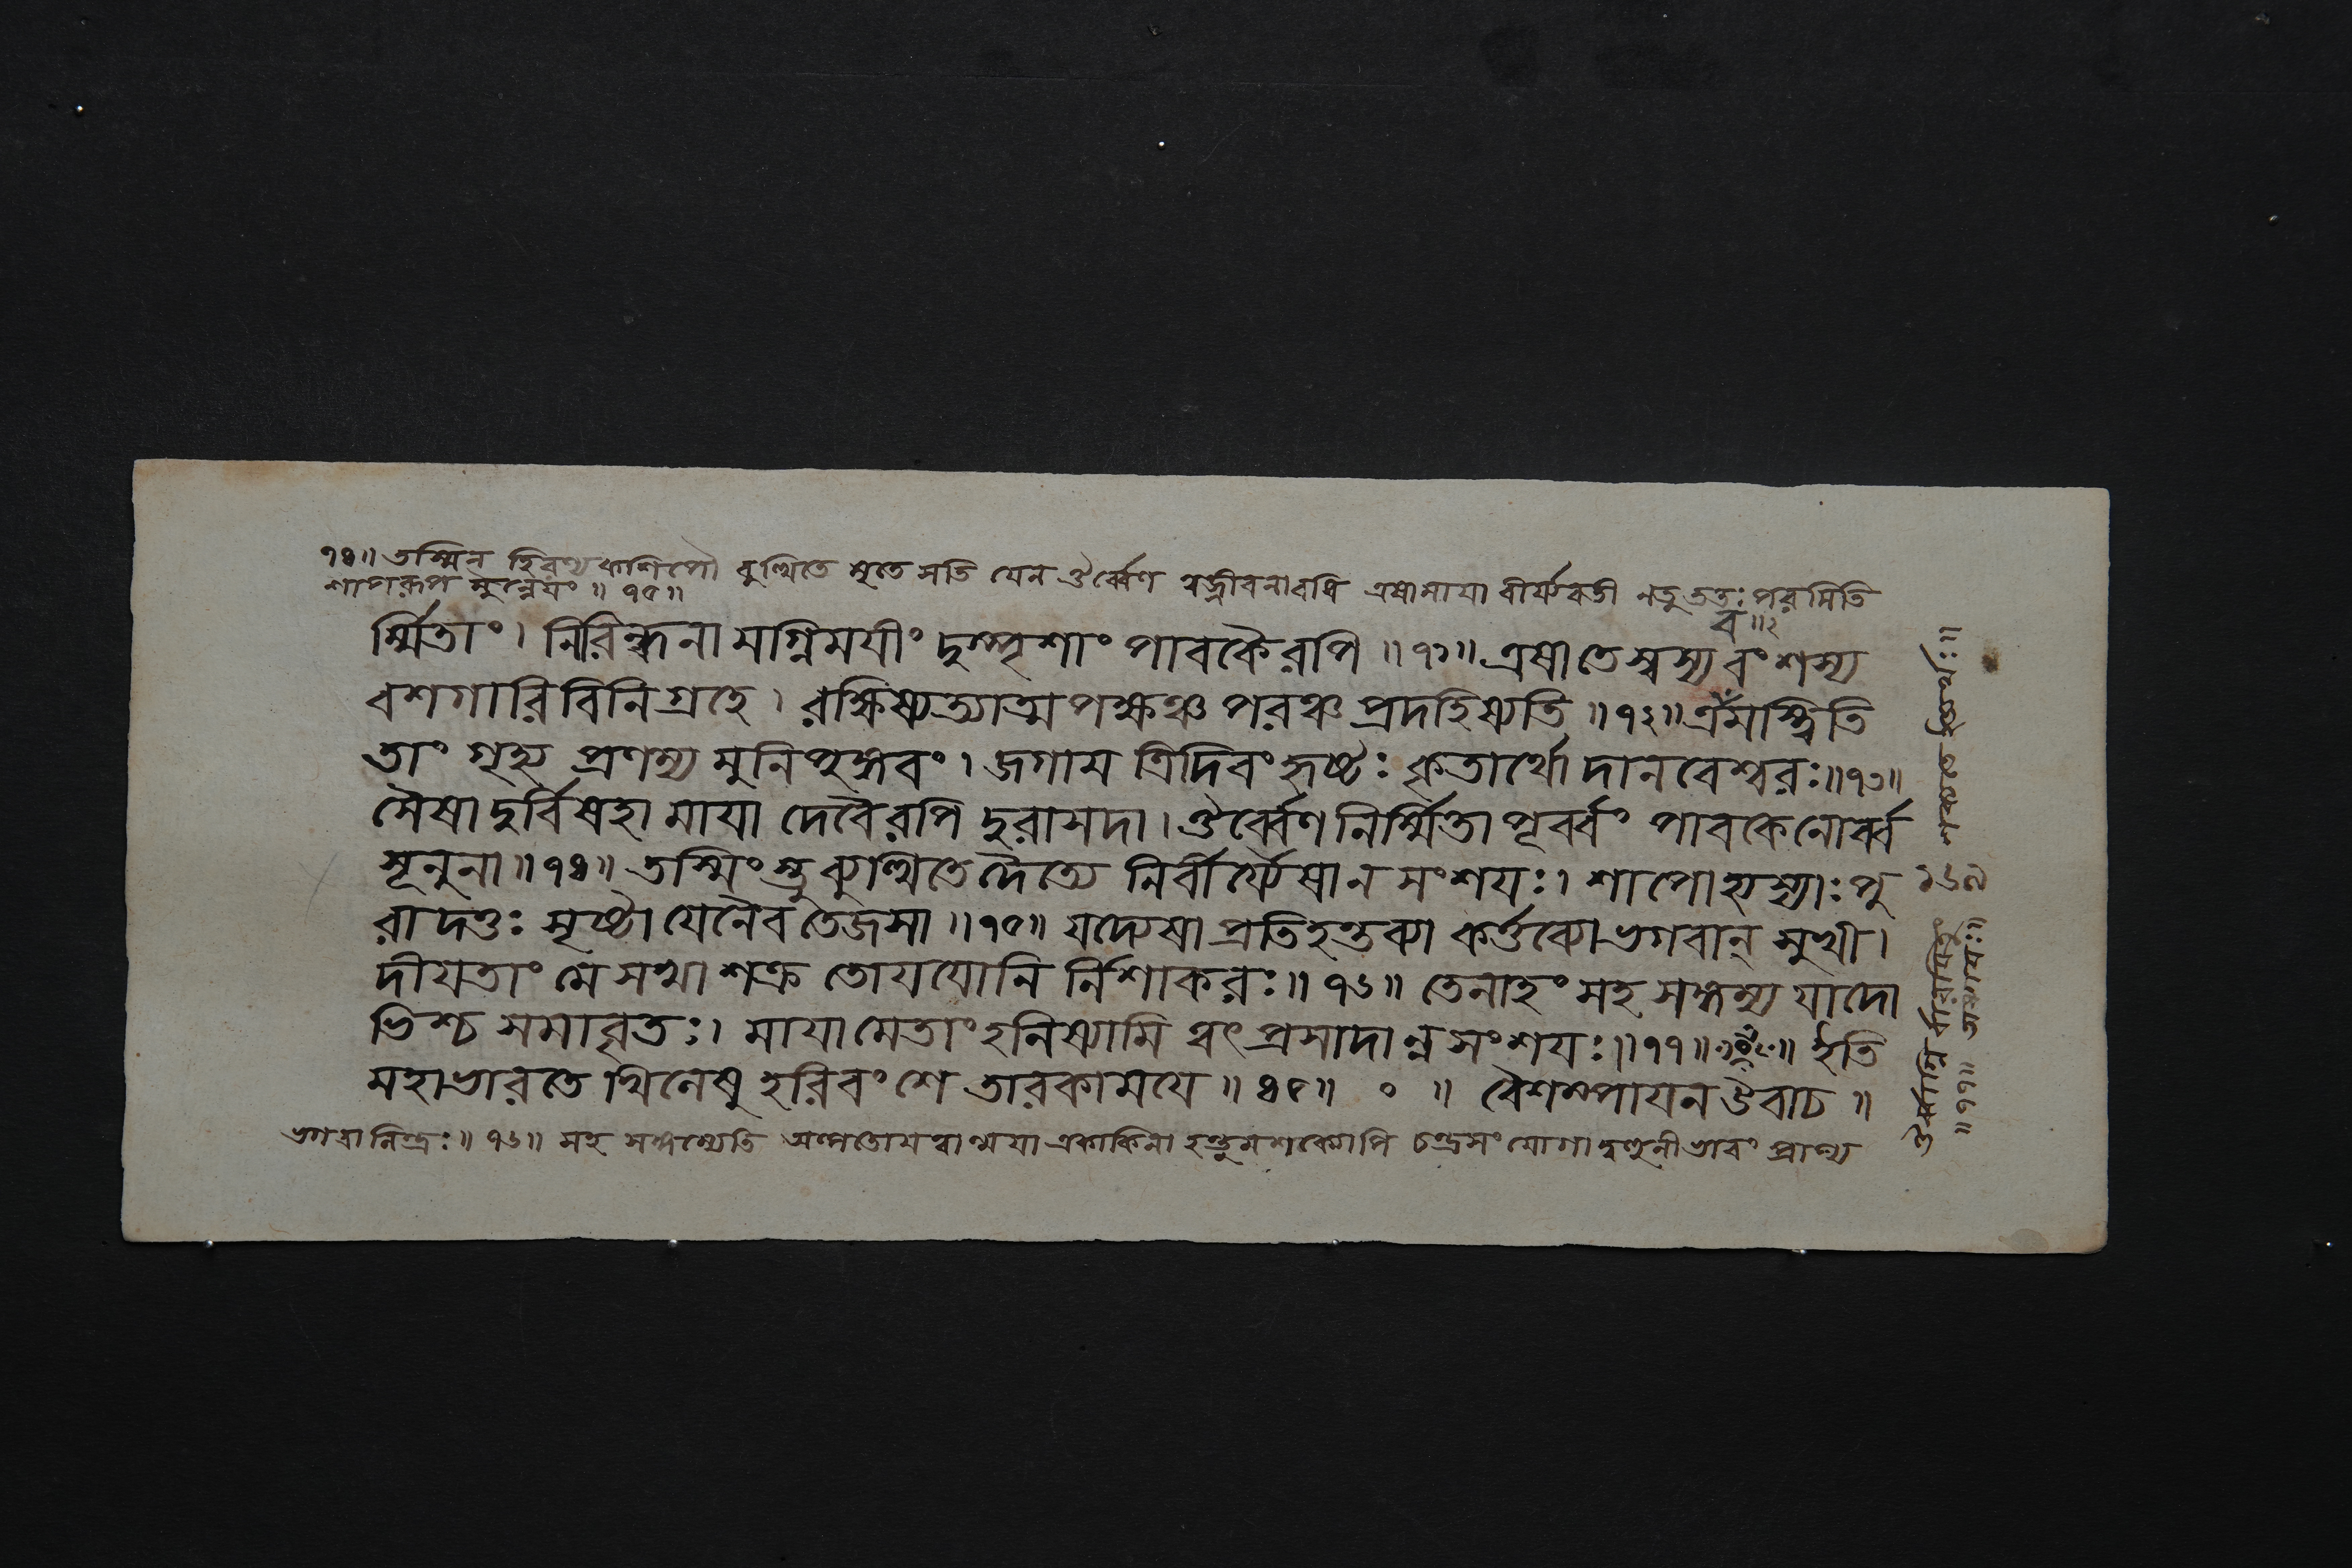 ৭৪॥ তস্মিন হিরণ্যকশিপৌ ব্যুত্থিতে মৃতে সতি যেন ঔর্ব্বেণ স্বজীবনাবধি এষামাযা বীর্য্যবতী নতু ততঃ পরমিতি
শাপরূপ মুন্নেযং ॥ ৭৫॥
ব॥২
র্ম্মিতাং। নিরিন্ধনা মগ্নিমযীং দুস্পৃশাং পাবকৈরপি ॥৭১॥ এষাতেস্বস্য বংশস্য
বশগারি বিনিগ্রহে। রক্ষিষ্যত্যাত্ম পক্ষঞ্চ পরঞ্চ প্রদহিষ্যতি ॥৭২॥ এমস্ত্বিতি
তাং গৃহ্য প্রণম্য মুনি পুঙ্গবং। জগাম ত্রিদিবং হৃষ্টঃ কৃতার্থো দানবেশ্বরঃ॥৭৩॥
সৈষা দুর্বিষহা মাযা দেবৈরপি দুরাসদা। ঔর্ব্বেণ নির্ম্মিতা পূর্ব্বং পাবকেনোর্ব্ব
সূনুনা॥৭৪॥ তস্মিংস্তু ব্যুত্থিতে দৈত্যে নির্বীর্য্যৈষা ন সংশযঃ। শাপোহ্যস্যাঃ পু
রা দত্তঃ সৃষ্টা যেনৈব তেজসা॥৭৫॥ যদ্যেষা প্রতিহন্তব্যা কর্ত্তব্যো ভগবান্ সুখী।
দীযতাং মে সখা শক্র তোযযোনি র্নিশাকরঃ॥৭৬॥ তেনাহং সহ সঙ্গম্য যাদো
ভিশ্চ সমাবৃতঃ। মাযামেতাং হনিষ্যামি ত্বৎ প্রসাদান্ন সংশযঃ॥৭৭॥ ইতি
মহাভারতে খিলেষু হরিবংশে তারকামযে ॥৪৫॥ ০ ॥ বৈশম্পাযন উবাচ ॥
ভগবানিন্দ্রঃ॥ ৭৬॥ সহ সঙ্গম্যেতি অতোময্বাত্মযা একাকিনা হন্তুমশক্যোপি চন্দ্রসংযোগা ভাবং প্রাপ্য
১৬৯
॥৭৭॥